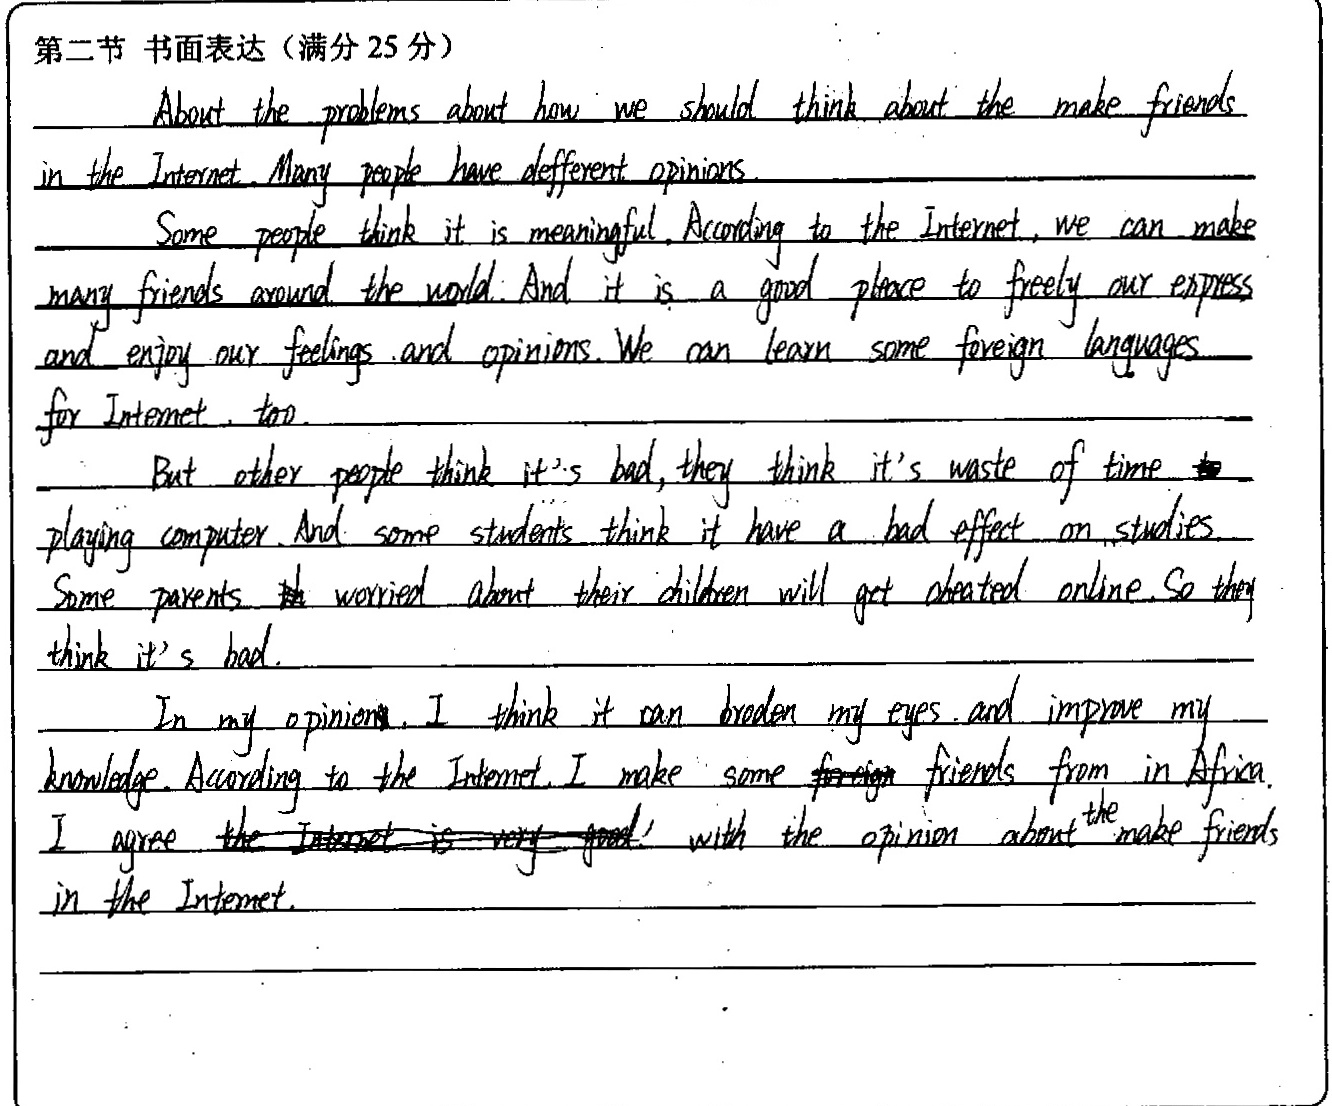 第二节 书面表达（满分 25 分）
About the problems about how we should think about the make friends
in the Internet. Many people have defferent opinions.
Some people think it is meaningful. According to the Internet, we can make
many friends around the world. And it is a good pleace to freely our express
and enjoy our feelings and opinions. We can learn some foreign languages
for Internet, too.
But other people think it's bad, they think it's waste of time to
playing computer. And some students think it have a bad effect on studies.
Some parents th worried about their children will get cheated online. So they
think it's bad.
In my opinion, I think it can broden my eyes and improve my
knowledge. According to the Internet, I make some foreign friends from in Africa.
I agree the Internet is very good with the opinion about the make friends
in the Internet.